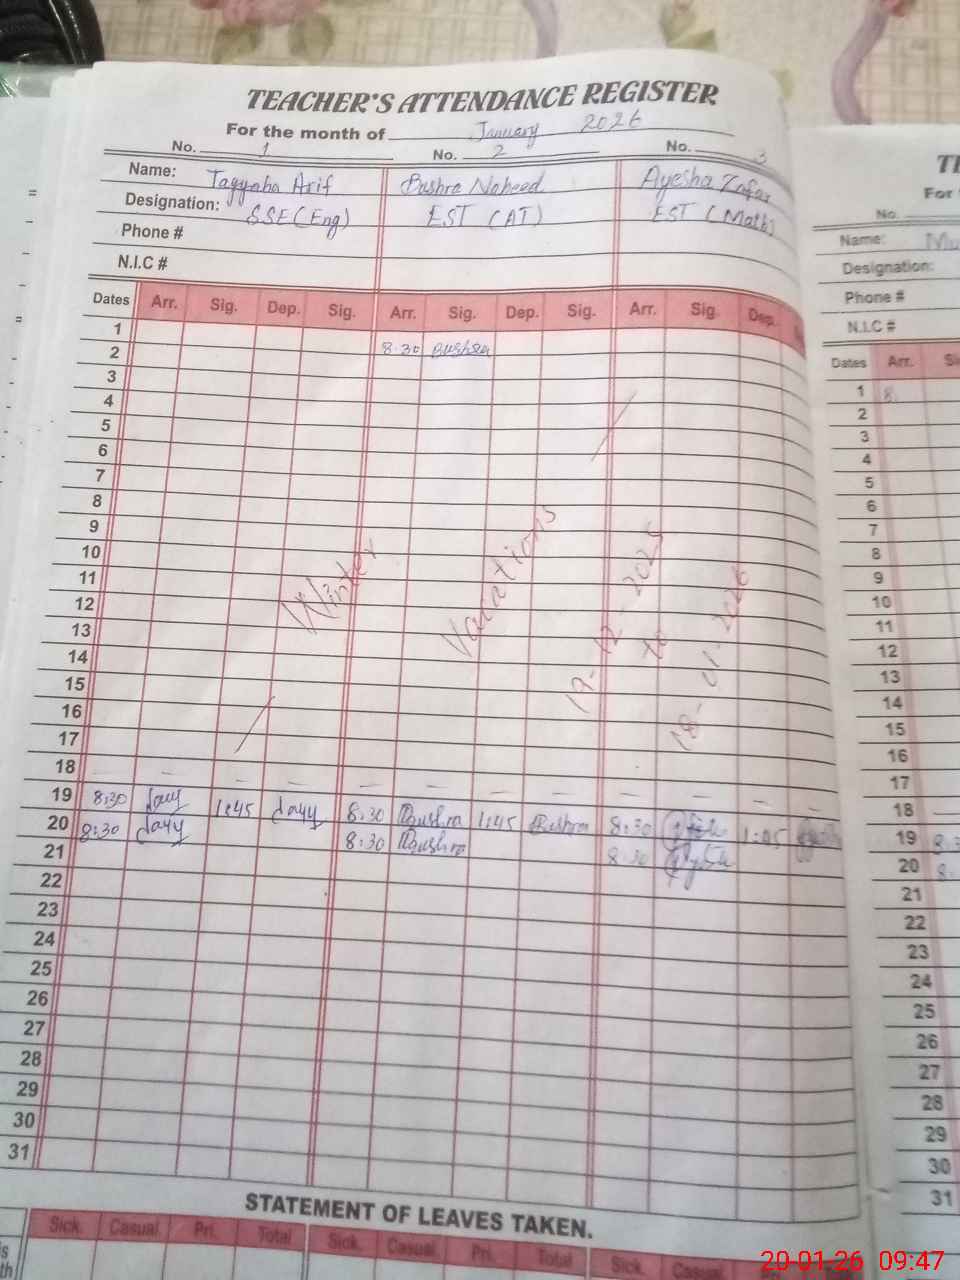 TEACHER'S ATTENDANCE REGISTER
For the month of January 2026
No. 1 No. 2 No. 3
Name: Tayyaba Arif Bushra Naheed Ayesha Zafar
Designation: SSE (Eng) EST (AT) EST (Math)
Phone #
N.I.C #
Dates Arr. Sig. Dep. Sig. Arr. Sig. Dep. Sig. Arr. Sig. Dep.
1
2 8:30 Bushra
3
4
5
6
7
8
9
10
11
12
13
14
15
16
17
18
Winter Vacations 19-12-2025 to 18-01-2026
19 8:30 1:45 8:30 Bushra 1:45 Bushra 8:30 1:05
20 8:30 8:30 Bushra 8:30
21
22
23
24
25
26
27
28
29
30
31
STATEMENT OF LEAVES TAKEN.
Sick. Casual. Pri. Total Sick. Casual. Pri. Total Sick. Casual.
For
No.
Name: Mu
Designation:
Phone #
N.I.C #
Dates Arr.
1 8.
2
3
4
5
6
7
8
9
10
11
12
13
14
15
16
17
18
19 8:3
20 8.
21
22
23
24
25
26
27
28
29
30
31
20-01-26 09:47